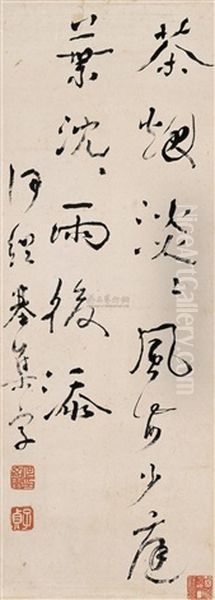 茶煙淡〻風前少庭
葉沈〻雨後添
何紹基集字